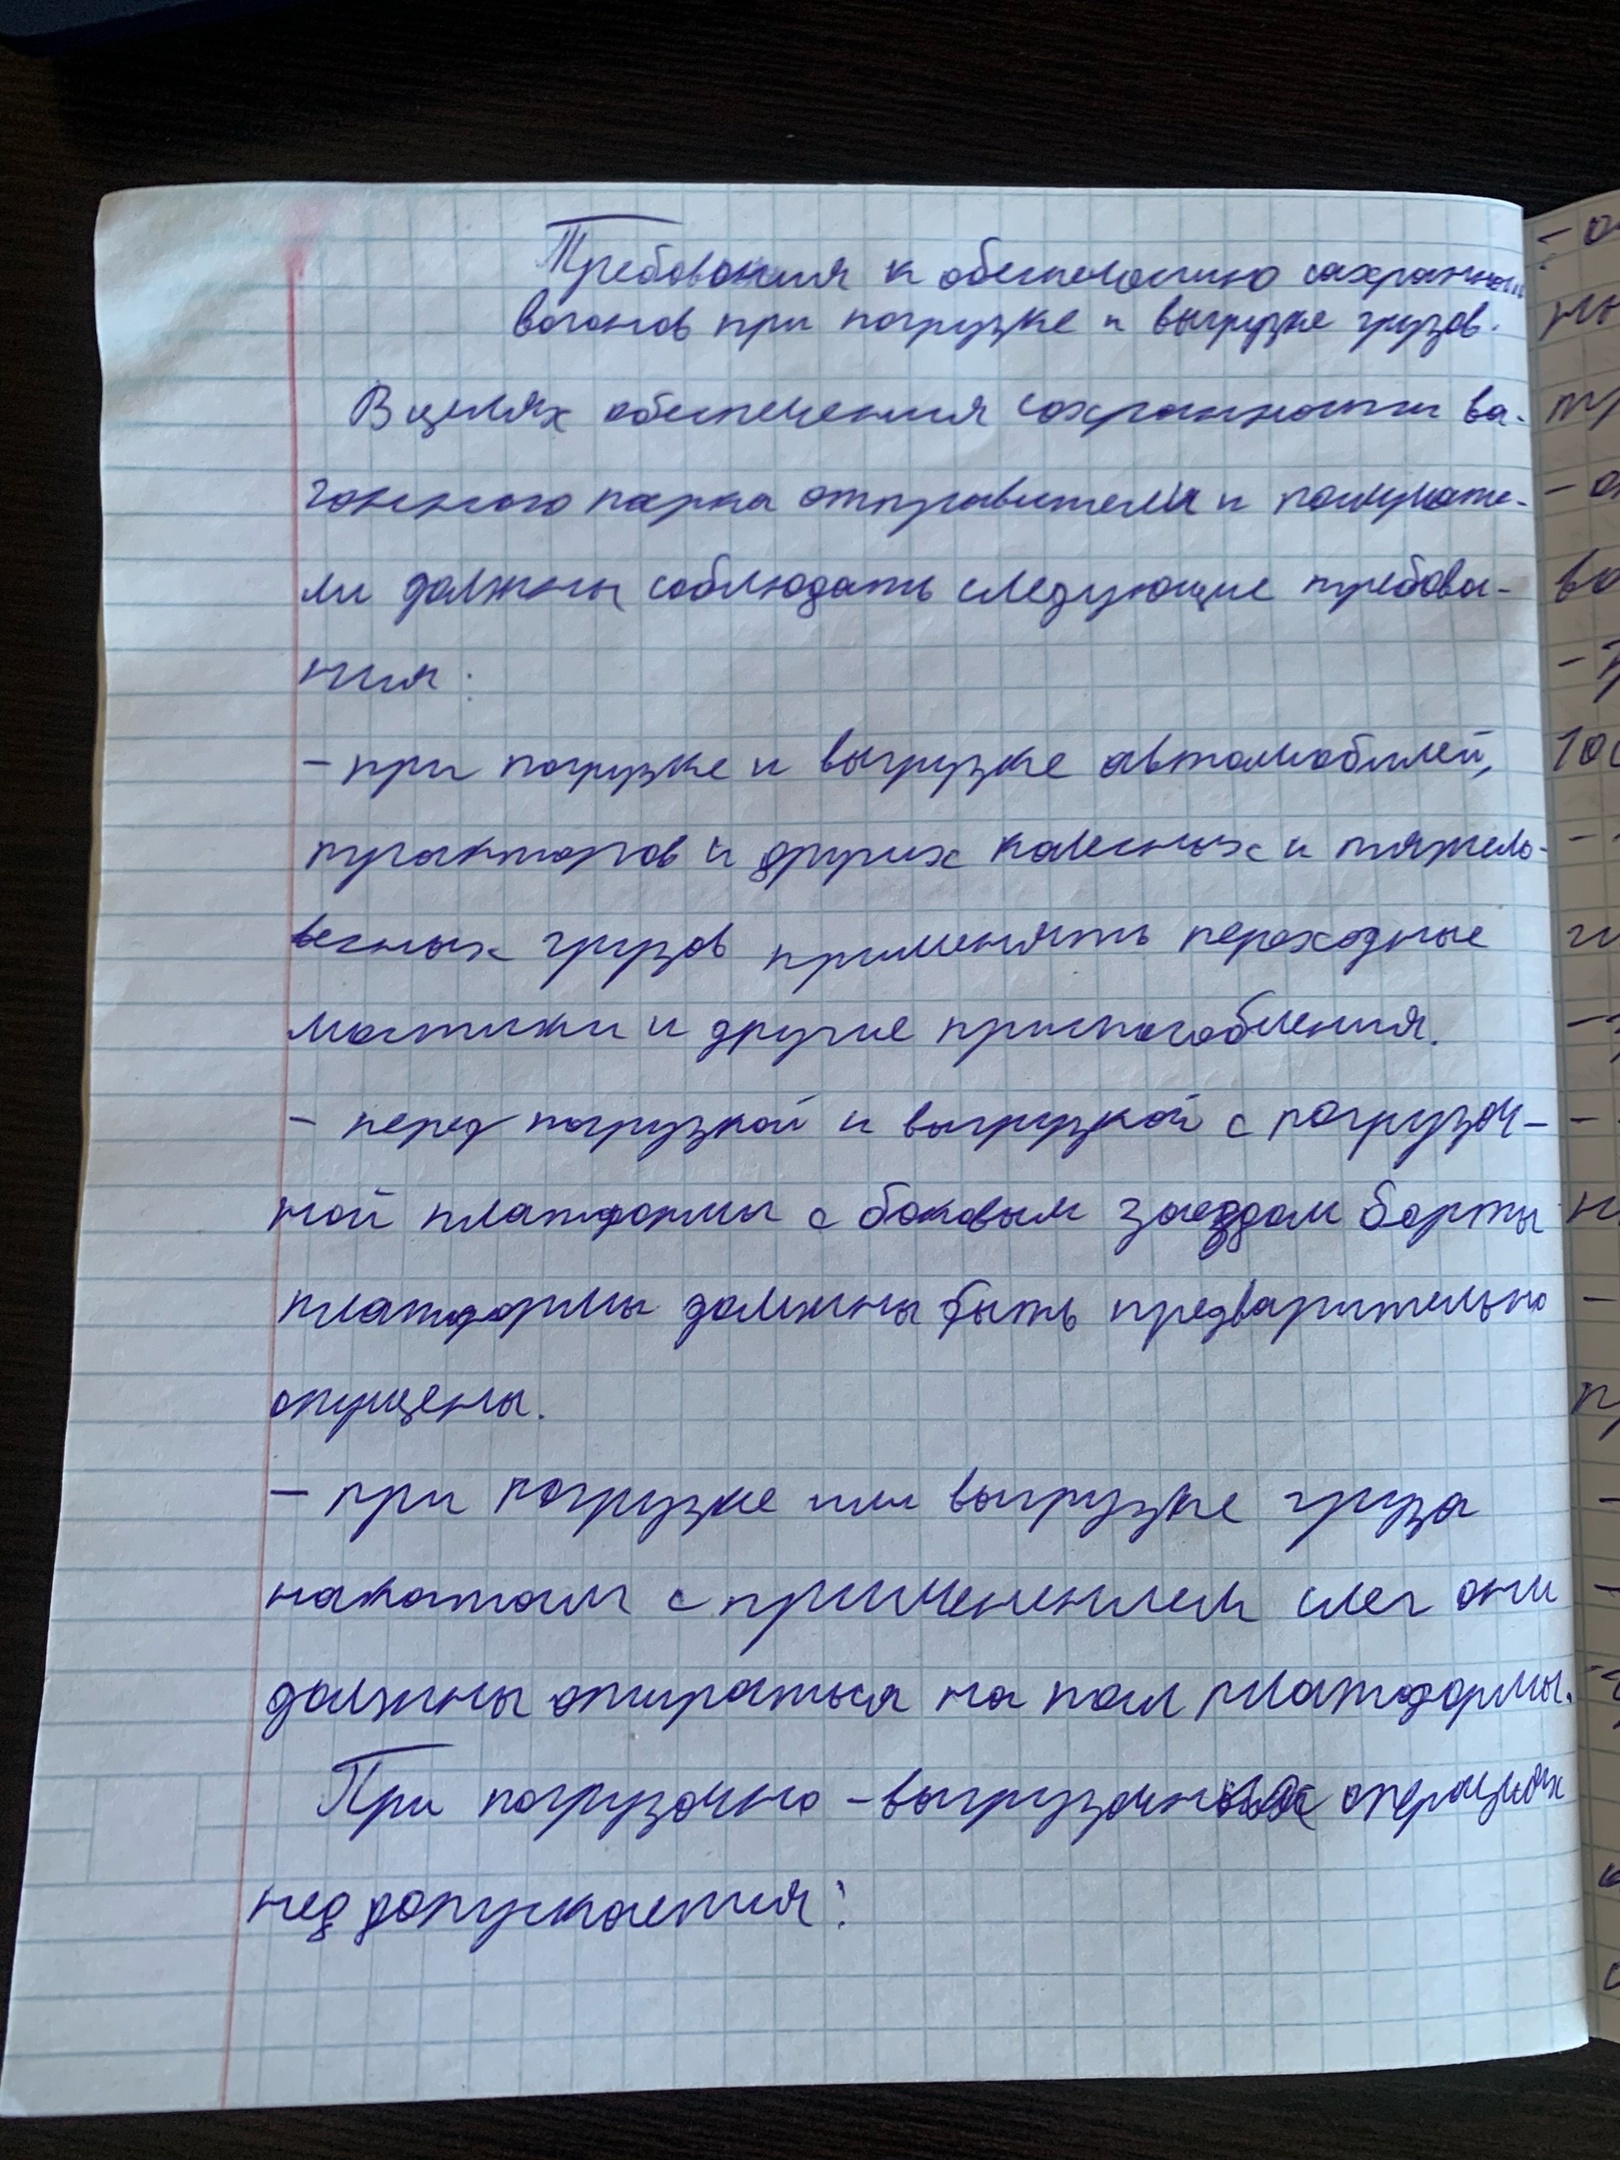 Требования к обеспечению сохранности
вагонов при погрузке и выгрузке грузов.
В целях обеспечения сохранности ва-
гонного парка отправители и получате-
ли должны соблюдать следующие требова-
ния:
- при погрузке и выгрузке автомобилей,
тракторов и других колесных и тяжело-
весных грузов применять переходные
мостики и другие приспособления.
- перед погрузкой и выгрузкой с погрузоч-
ной платформы с боковым заездом борты
платформы должны быть предварительно
опущены.
- при погрузке или выгрузке груза
накатом с применением слег они
должны опираться на пол платформы.
При погрузочно-выгрузочных операциях
не допускается: